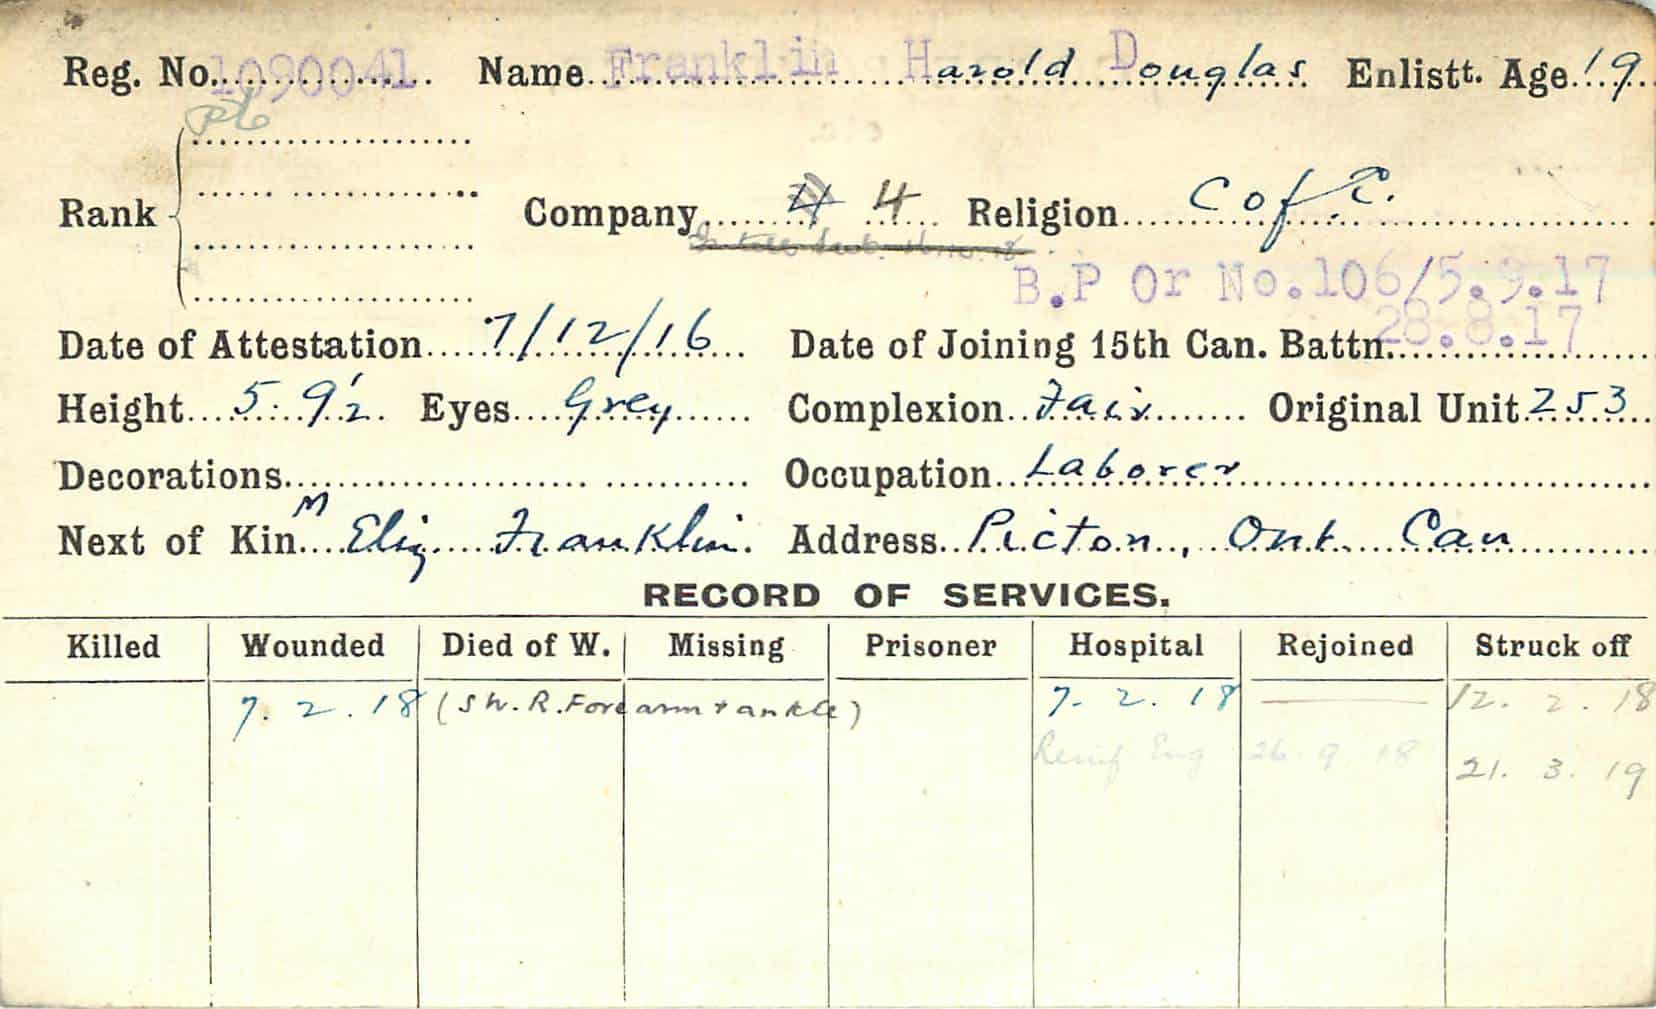 Reg. No. 1090041 Name Franklin Harold Douglas Enlistt. Age 19
Pte
Rank Company 4 4 Religion C of E.
B.P Or No.106/5.9.17
28.8.17
Date of Attestation 7/12/16 Date of Joining 15th Can. Battn.
Height 5. 9½ Eyes Grey Complexion Fair Original Unit 253
Decorations Occupation Laborer
M
Next of Kin Eliz Franklin. Address Picton, Ont. Can
RECORD OF SERVICES.
Killed Wounded Died of W. Missing Prisoner Hospital Rejoined Struck off
7. 2. 18 (SW. R. Forearm + ankle) 7. 2. 18 12. 2. 18
Reinf Eng 26. 9. 18 21. 3. 19